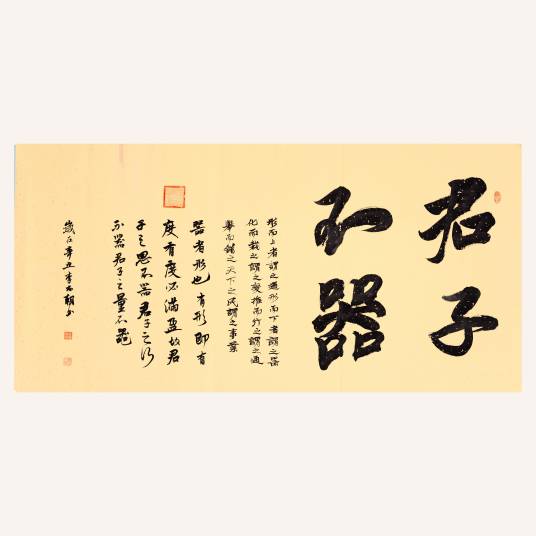 君子
不器
形而上者謂之道形而下者謂之器
化而裁之謂之變推而行之謂之通
舉而錯之天下之民謂之事業
器者形也有形即有
度有度必滿盈故君
子之思不器君子之行
不器君子之量不器
歲在辛丑李